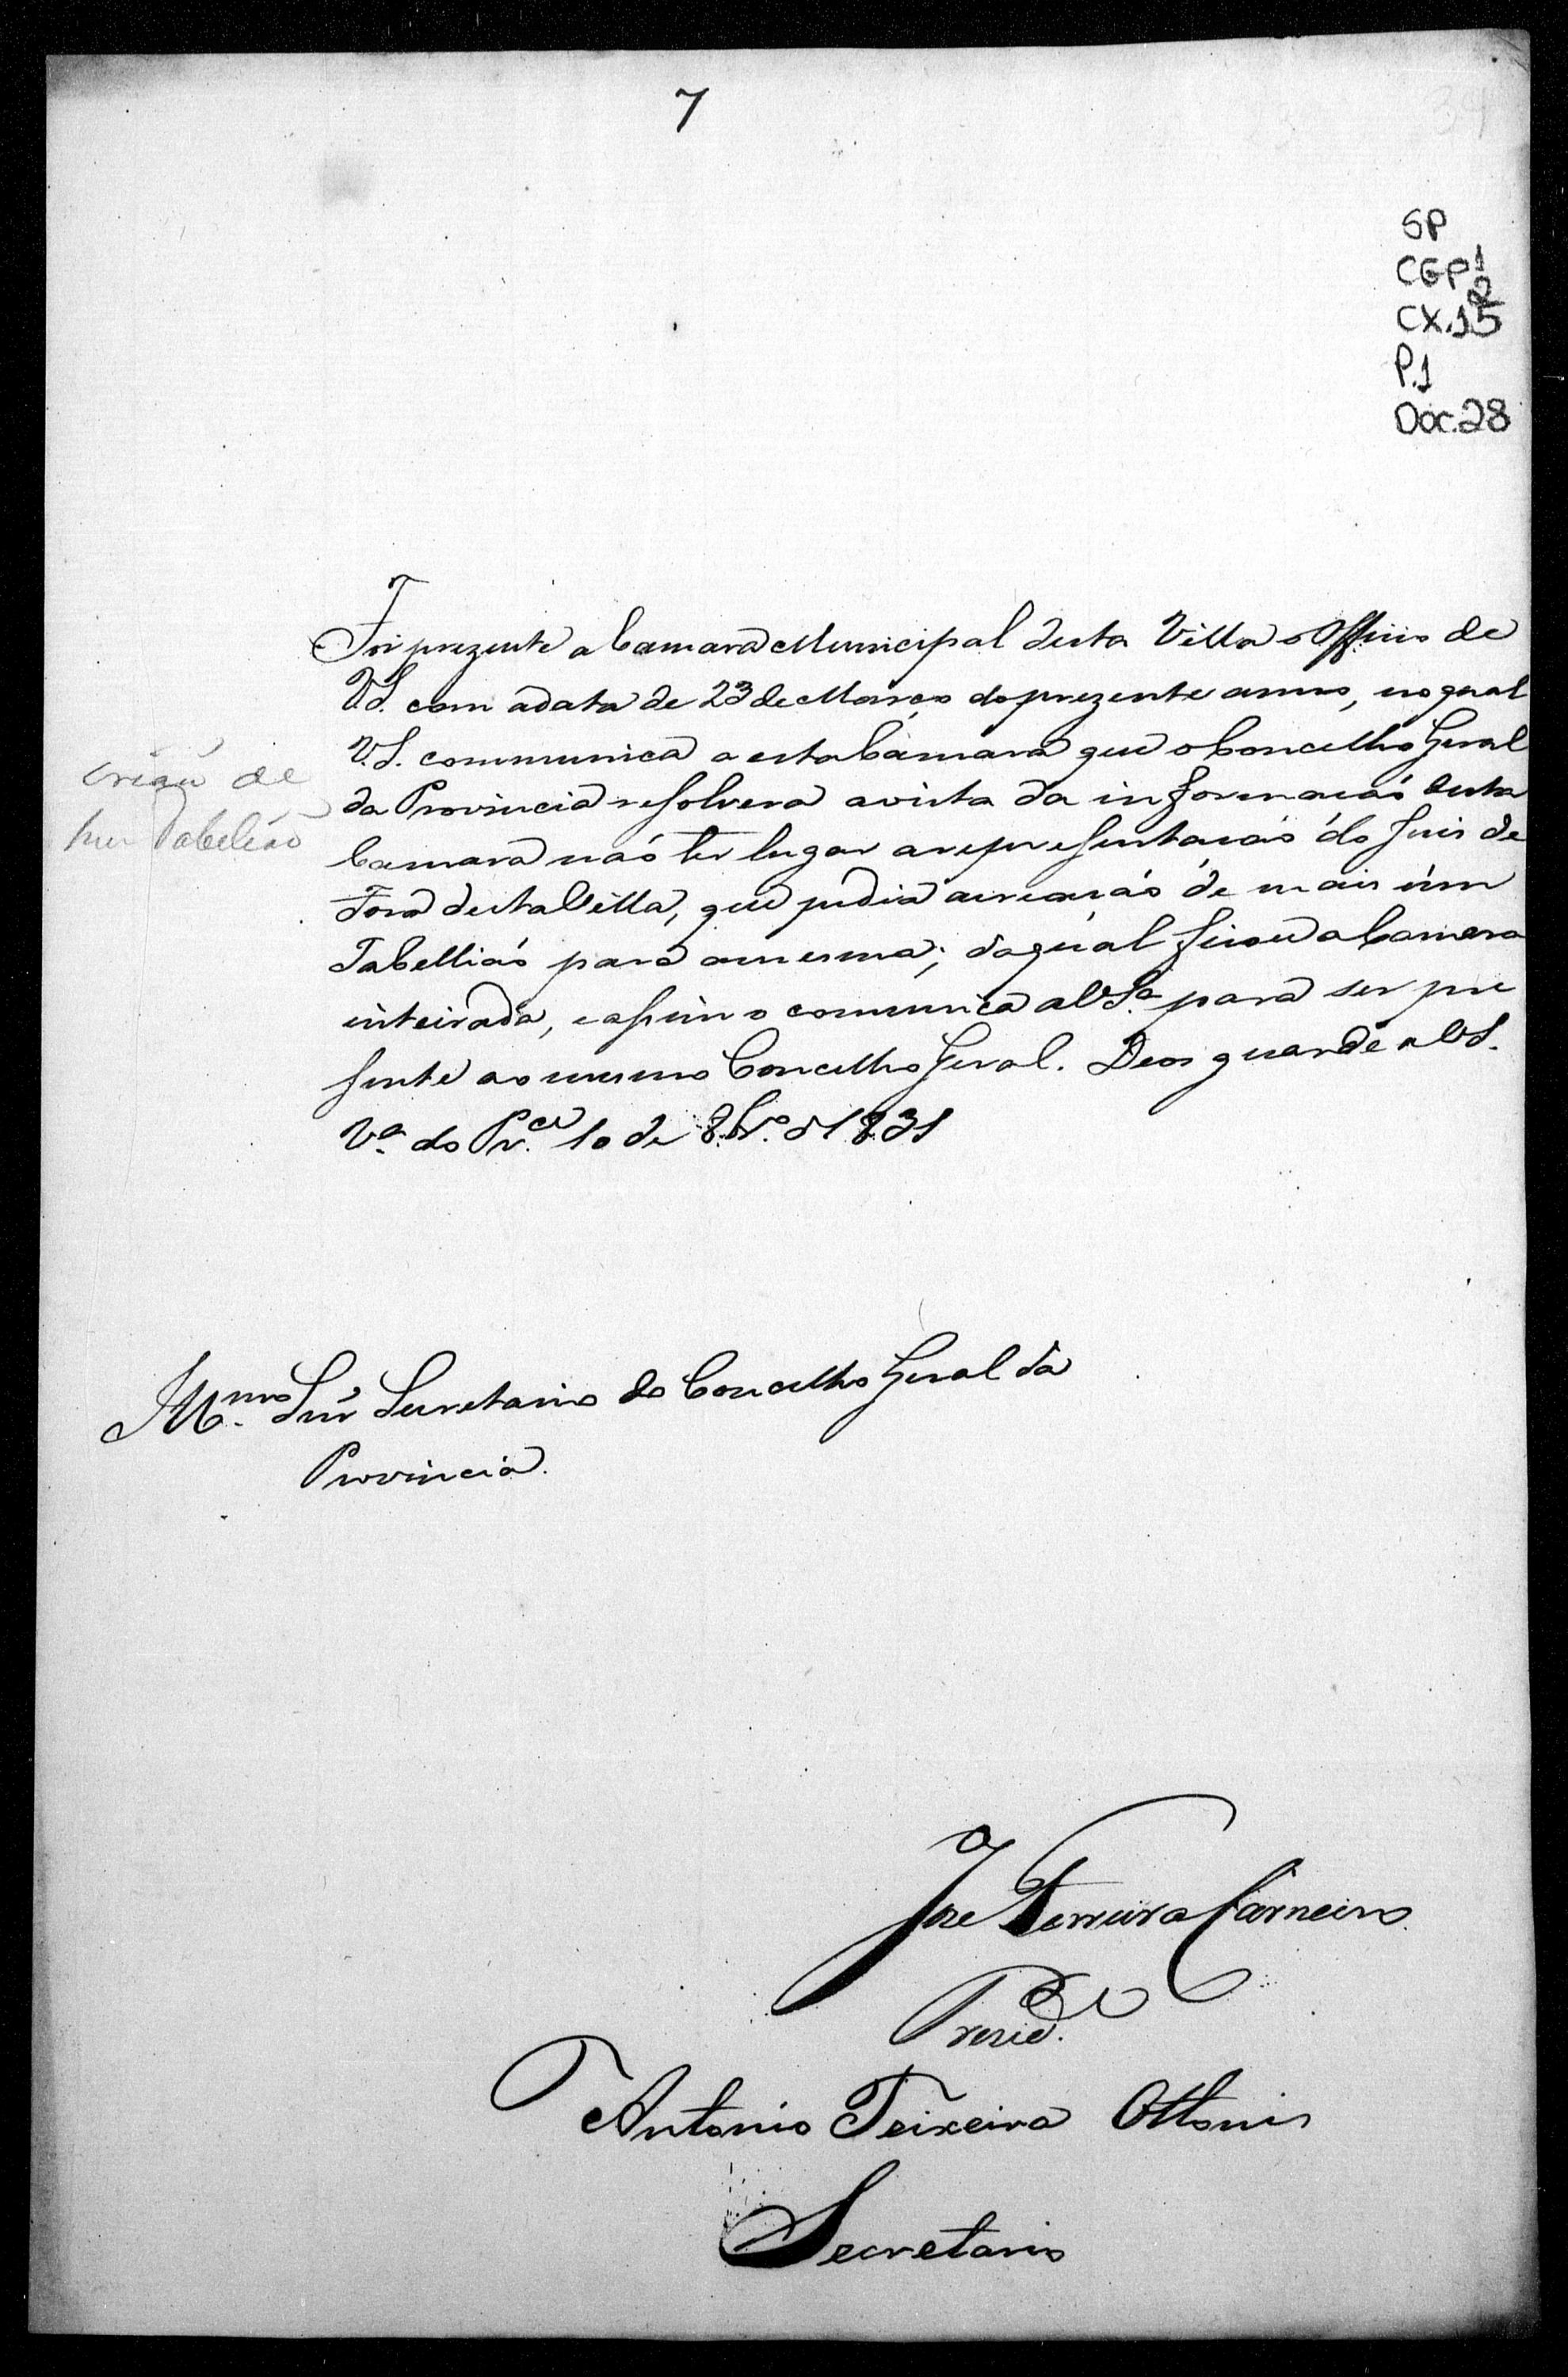 7
34
SP
CGP1
2
CX.15
P.1
Doc.28
Foi prezente a Camara Municipal desta Villa o Officio de
V.S. com adata de 23 de Março do prezente anno, no qual
V.S. communica a esta Camara que o Concelho Geral
da Provincia resolvera avista da informacaó desta
Camara naó ter lugar arepresentacaó do Juis de
Fora desta Villa, que pedia acreacaó de mais úm
Tabelliaó para amesma; doqual ficou a Camara
inteirada, eassim o comunica a V.Sª para ser pre
sente ao mesmo Concelho Geral. Deos guarde a V.S.
Vª do Pr.ce 10 de 8.brº d 1831
de
hum Tabelião
Illmo. Snr Secretario do Concelho Geral da
Provincia.
Jozé Ferreira Carneiro
Prezid.e
Antonio Teixeira Ottoni
Secretario